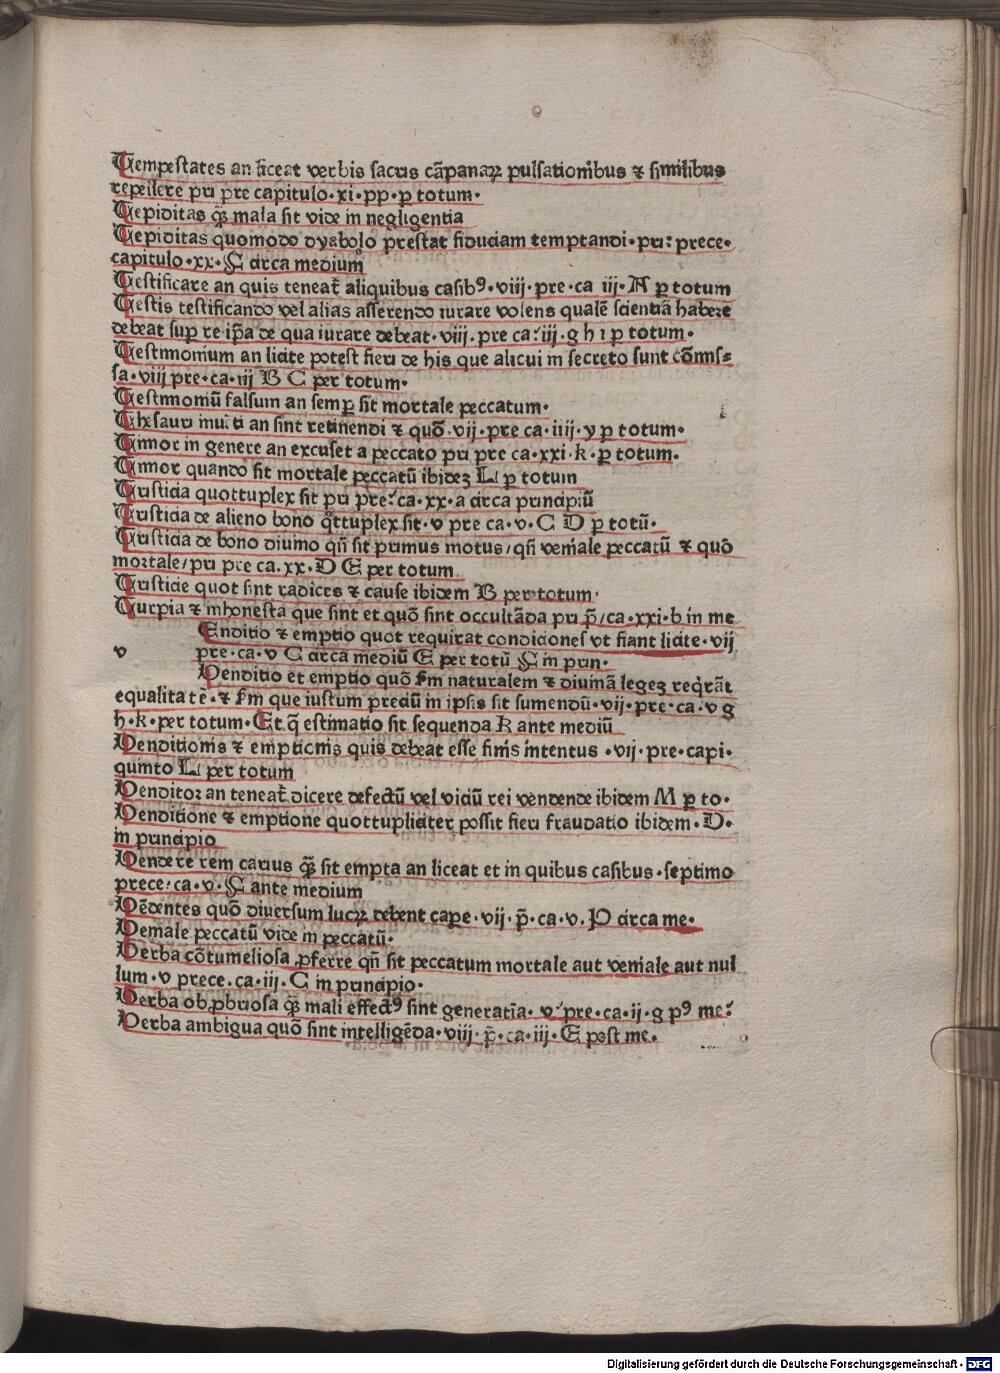 Tempestates an liceat verbis sacris cãpanaꝝ pulsationibus ⁊ similibus
repellere pri pre capitulo·xi·pp·p totum·
Tepiditas q̃ȝ mala sit vide in negligentia
Tepiditas quomodo dyabolo prestat fiduciam temptandi·pri: prece·
capitulo·xx·F circa medium
Testificare an quis teneat᷑ aliquibus casibꝰ·viij·pre·ca iij·A p totum
Testis testificando vel alias asserendo iurare volens qualẽ scientiã habere
debeat suꝑ re ip̃a de qua iurare debeat·viij·pre ca:iij·g h i p totum·
Testimonium an licite potest fieri de his que alicui in secreto sunt cõmis⸗
sa·viij pre·ca·iij B C per totum·
Testimoniũ falsum an semꝑ sit mortale peccatum·
Thesauri inuẽti an sint retinendi ⁊ quõ·vij·pre ca·iiij·y p totum·
Timor in genere an excuset a peccato pri pre ca·xxi·k·p totum·
Timor quando sit mortale peccatũ ibideȝ L p totum
Tristicia quottuplex sit pri pre:ca·xx·a circa principiũ
Tristicia de alieno bono q̊ttuplex sit·v pre ca·v·C D p totũ·
Tristicia de bono diuino qñ sit primus motus/qñ veniale peccatũ ⁊ quõ
mortale/pri pre ca.xx·D E per totum
Tristicie quot sint radices ⁊ cause ibidem B per totum·
Turpia ⁊ inhonesta que sint et quõ sint occultãda pri p̃/ca·xxi·b in me
Enditio ⁊ emptio quot requirat condiciones vt fiant licite·vij
v pre·ca·v C circa mediũ E per totũ F in prin·
Venditio et emptio quõ ẜm naturalem ⁊ diuinã legeȝ reqͥrãt
equalitatẽ·⁊ ẜm que iustum preciũ in ipsis sit sumendũ·vij·pre·ca·v g
h·k·per totum·Et q̃ estimatio sit sequenda k ante mediũ
Venditionis ⁊ emptionis quis debeat esse finis intentus·vij·pre·capi·
quinto L per totum
Venditor an teneat᷑ dicere defectũ vel viciũ rei vendende ibidem M p to·
Venditione ⁊ emptione quottupliciter possit fieri fraudatio ibidem·D·
in principio
Vendere rem carius q̃ȝ sit empta an liceat et in quibus casibus·septimo
prece:ca·v·F ante medium
Vẽdentes quõ diuersum lucrꝝ debent cape·vij·p̃·ca·v.P circa me·
Veniale peccatũ vide in peccatũ·
Verba cõtumeliosa ꝓferre qñ sit peccatum mortale aut veniale aut nul
lum·v prece.ca·iij·C in principio·
Verba obꝓbriosa q̃ȝ mali effectꝰ sint generatiã·v:pre·ca·ij·g pꝰ me:
Verba ambigua quõ sint intelligẽda·viij·p̃·ca·iij·E post me·
Digitalisierung gefördert durch die Deutsche Forschungsgemeinschaft - DFG